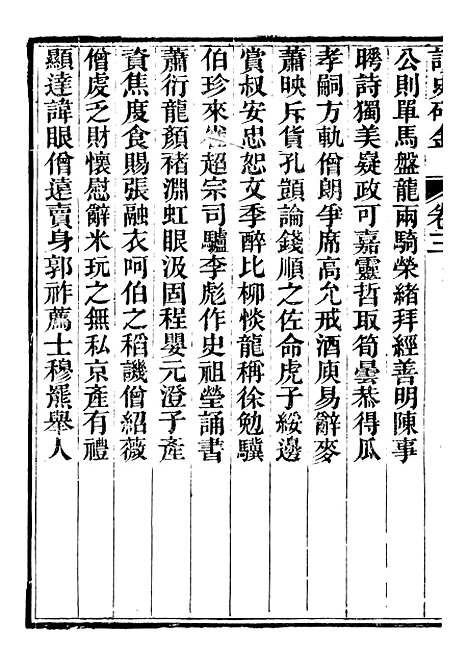 史碎金 卷三
公則單馬盤龍兩騎榮緒拜經善明陳事
聘詩獨美疑政可嘉靈哲取筍曇恭得瓜
孝嗣方軌僧朗爭席高允戒酒庾易辭麥
蕭映斥貨孔顗論錢順之佐命虎子綏邊
賞叔安忠恕文季醉比柳惔龍稱徐勉驥
伯珍來雀超宗司驢李彪作史祖瑩誦書
蕭衍龍顏褚淵虹眼汲固程嬰元澄子產
資焦度食賜張融衣呵伯之稻譏僧紹薇
僧虔乏財懷慰辭米玩之無私京產有禮
顯達諱眼僧達賣身郭祚薦士穆羆舉人